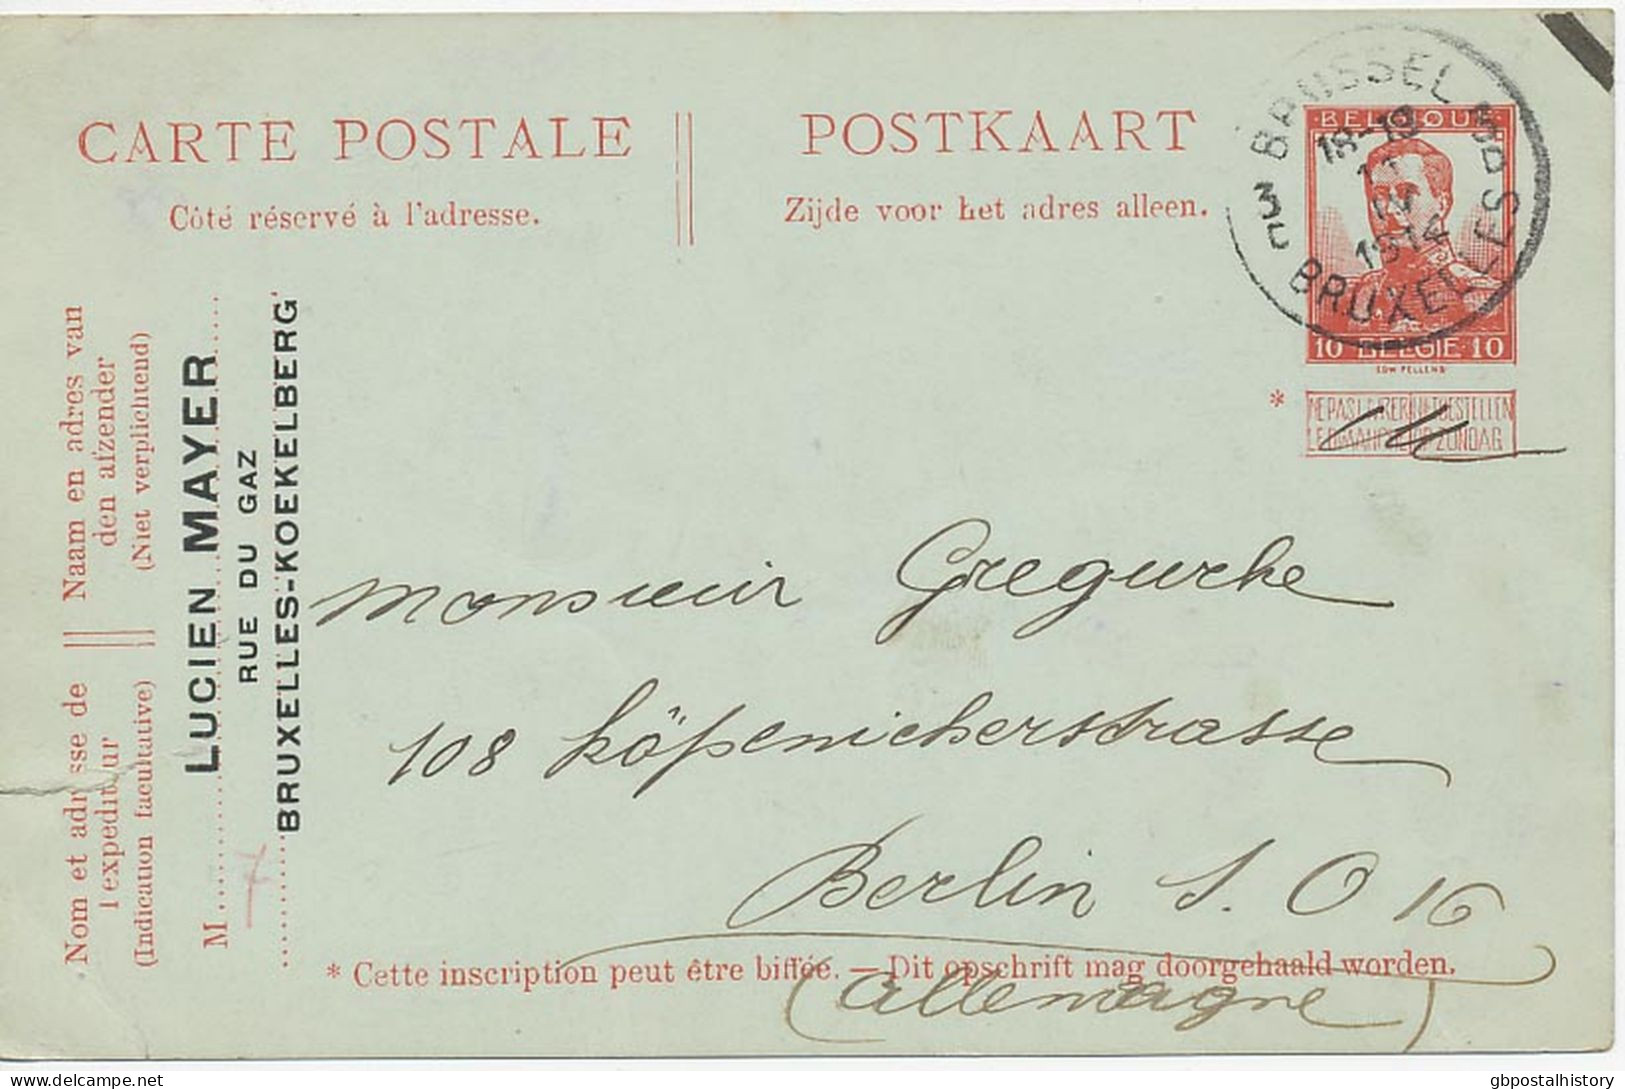 CARTE POSTALE
POSTKAART
Côté réservé à l'adresse.
Zijde voor het adres alleen.
BRUSSEL
18-19
IV
1914
BRUXELLES
BELGIQUE
10 BELGIE 10
EDW PELLENS
*
NE PAS LIVRER NIET BESTELLEN
LE DIMANCHE OP ZONDAG
Naam en adres van
den afzender
(Niet verplichtend)
Nom et adresse de
l'expediteur
(Indication facultative)
M
LUCIEN MAYER
7
RUE DU GAZ
BRUXELLES-KOEKELBERG
Monsieur Gregurke
108 Köpenickerstrasse
Berlin S. O 16
(Allemagne)
* Cette inscription peut être biffée. — Dit opschrift mag doorgehaald worden.
gbpostalhistory